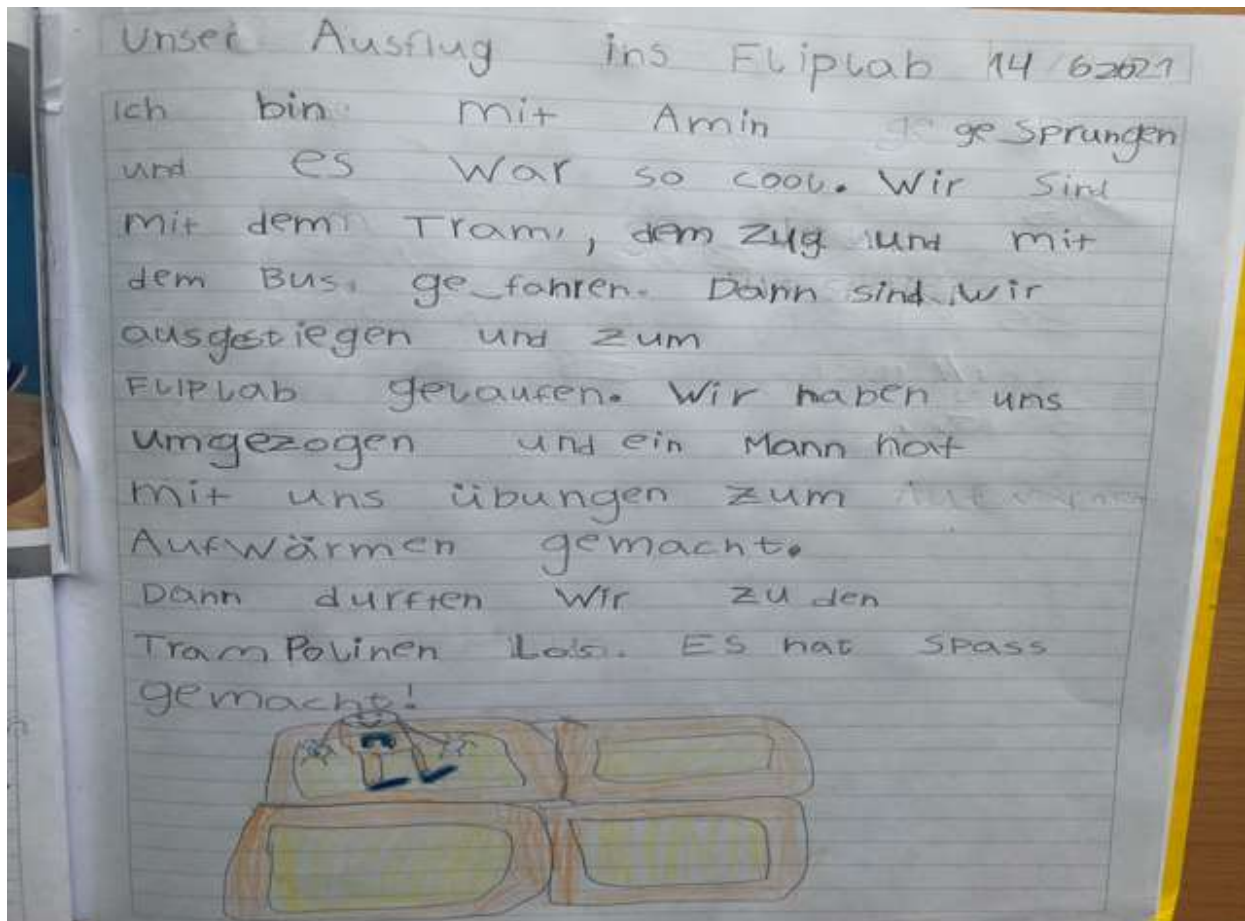 Unser Ausflug ins FlipLab 14 62021
Ich bin mit Amin ge sprungen
und es war so cool. Wir sind
mit dem Tram, dem Zug und mit
dem Bus ge fahren. Dann sind wir
ausgestiegen und zum
FlipLab gelaufen. Wir haben uns
umgezogen und ein Mann hat
mit uns übungen zum
Aufwärmen gemacht.
Dann durften wir zu den
TramPolinen Los. Es hat Spass
gemacht!